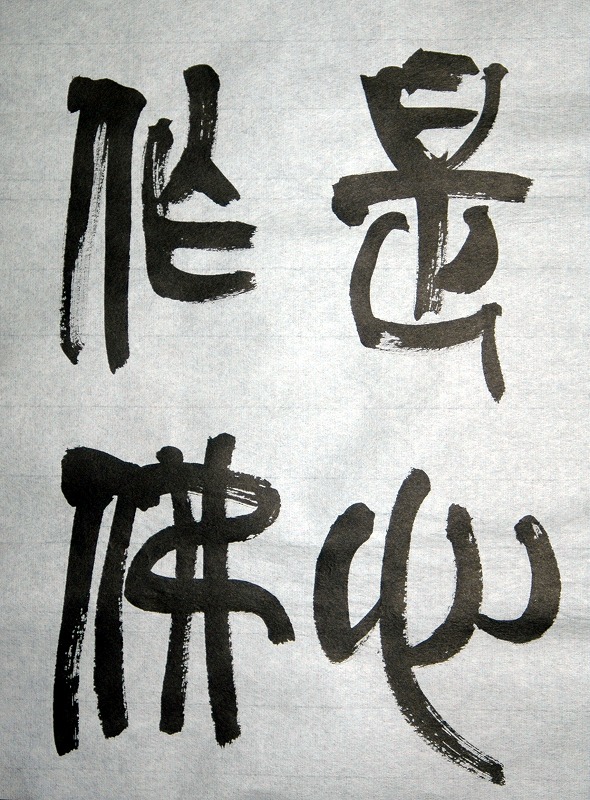 是心
作佛